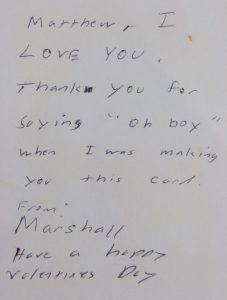 Matthew, I
LOVE YOU.
Thank you for
saying "oh boy"
when I was making
you this card.
From:
Marshall
Have a happy
Valentines Day